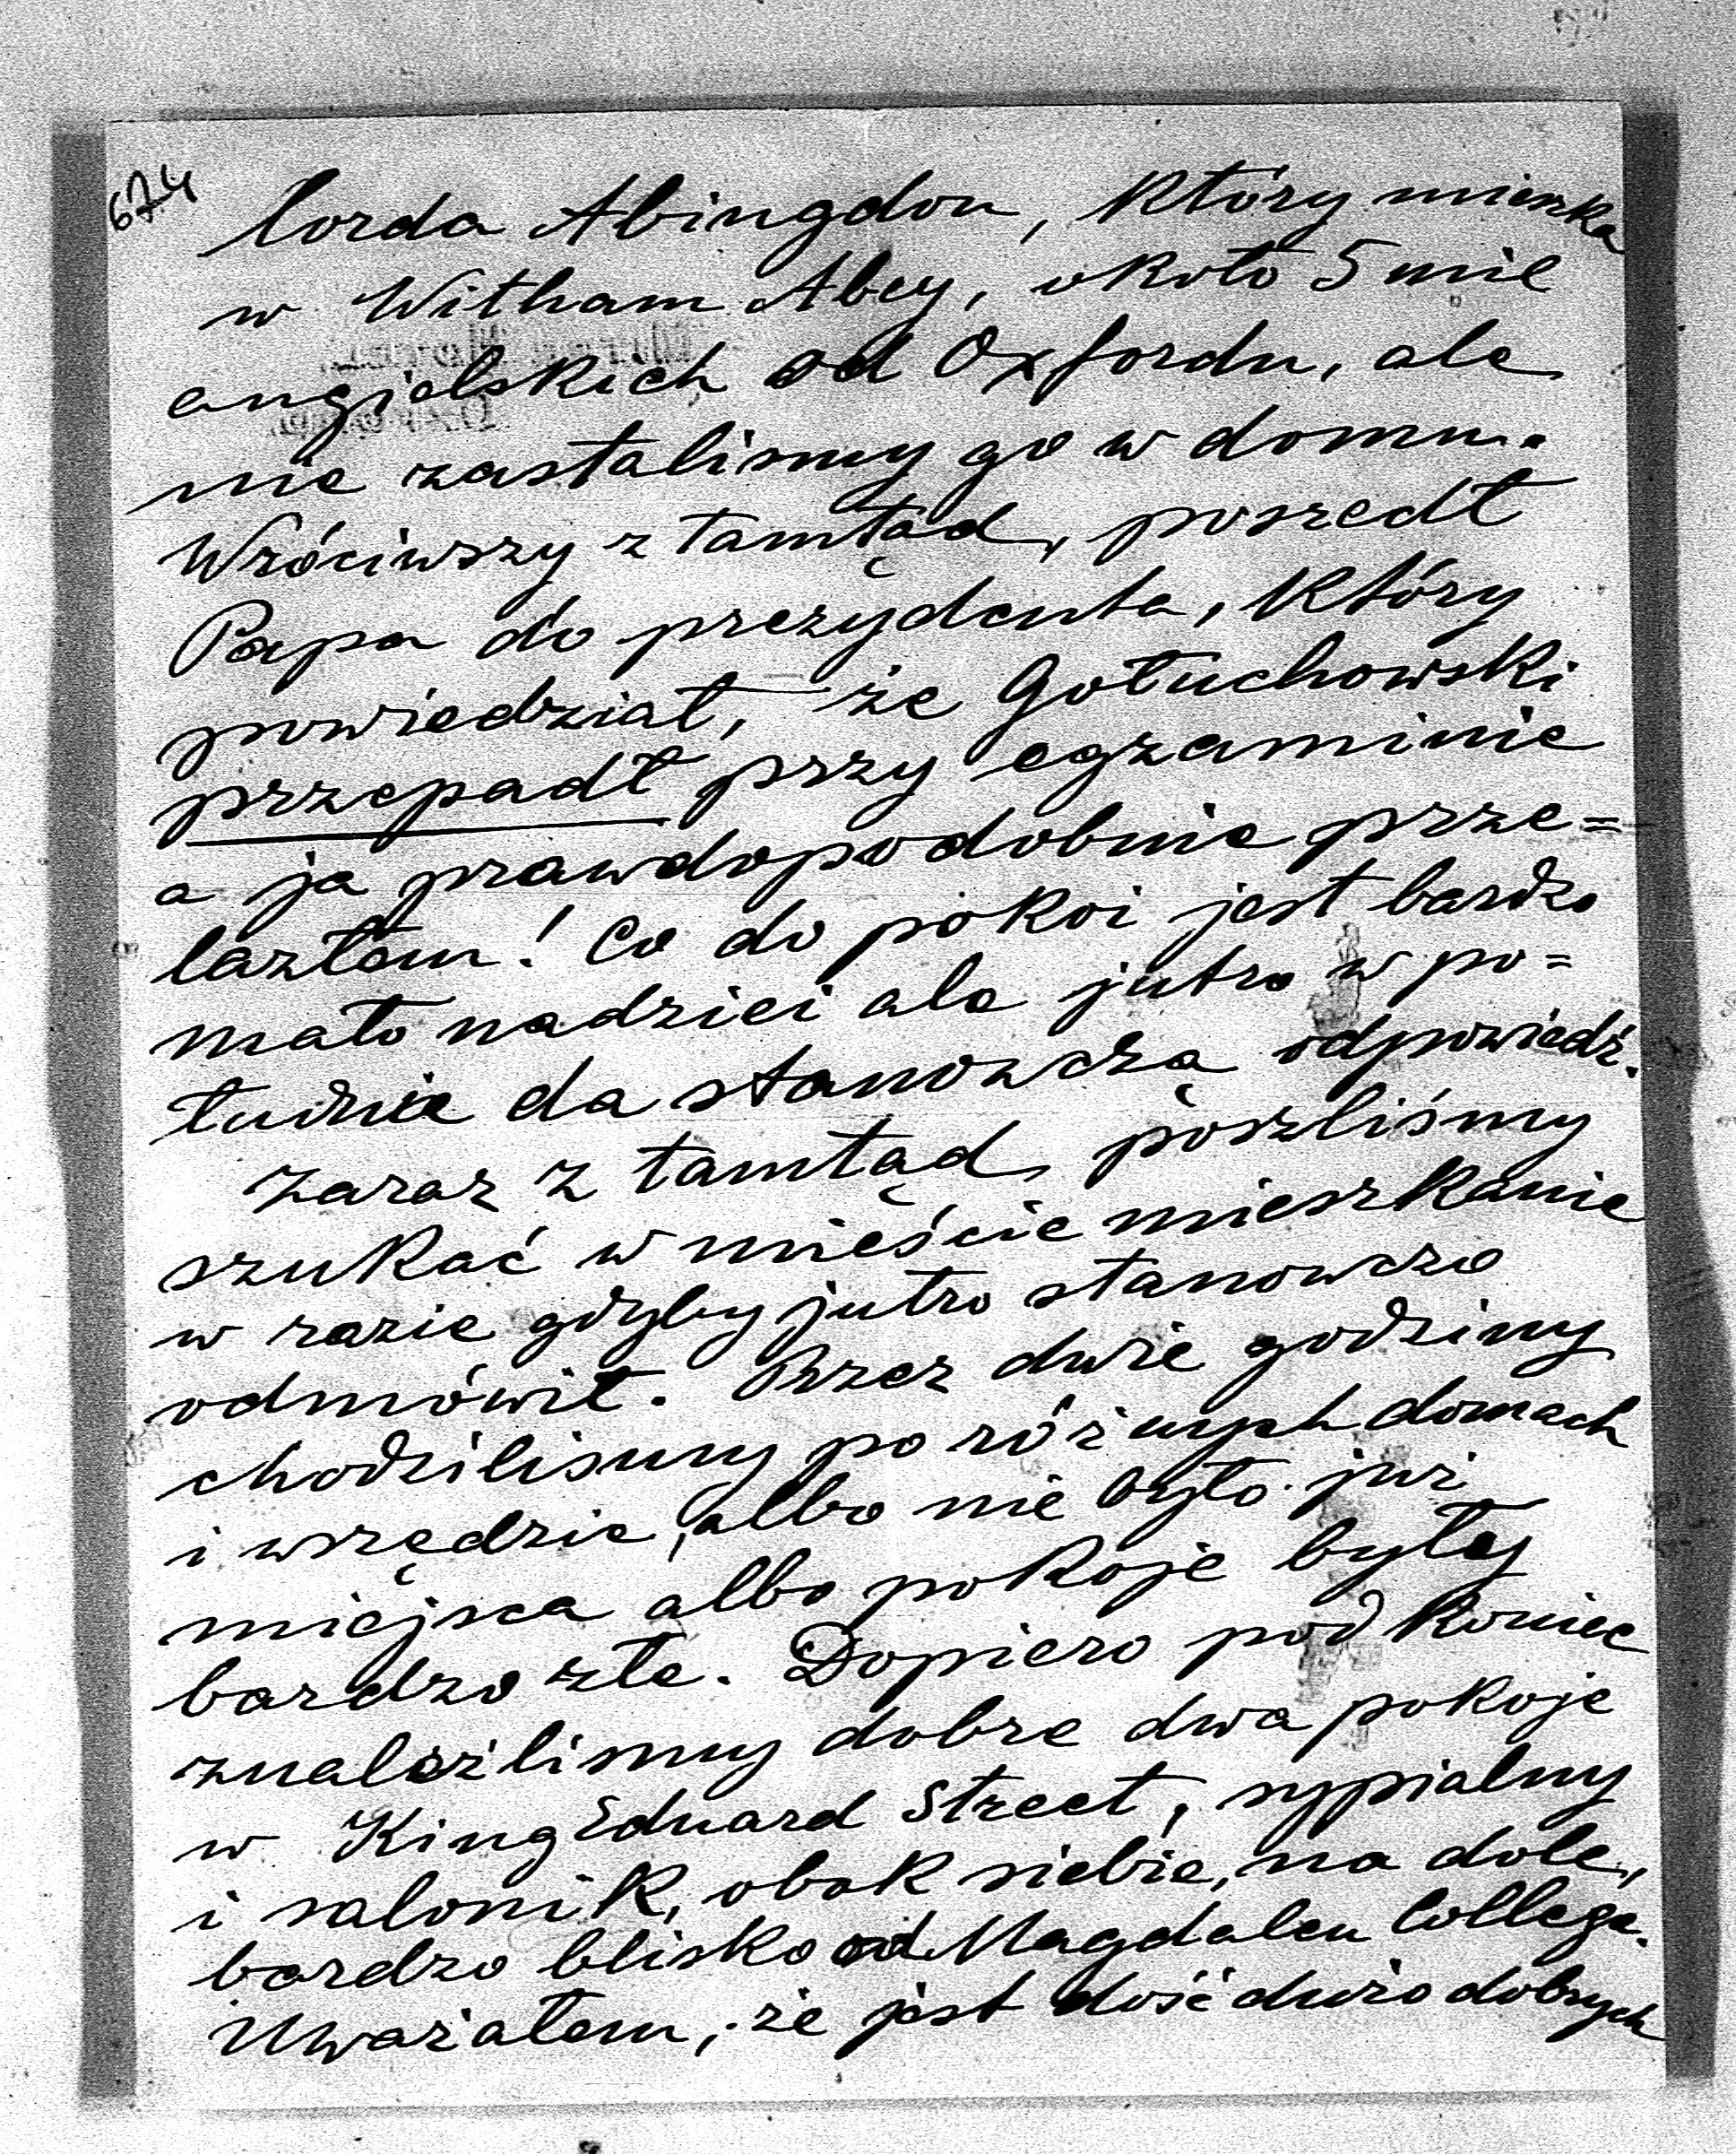 674
lorda Abingdon, który mieszka
w Witham Abey, około 5 mil
angielskich od Oxfordu, ale
nie zastalismy go w domu.
Wróciwszy z tamtąd, poszedł
Papa do prezydenta, który
powiedział, że Gołuchowski
przepadł przy egzaminie
a ja prawdopodobnie prze=
lazłem! Co do pokoi jest bardzo
mało nadziei ale jutro w po=
łudnie da stanowczą odpowiedź.
Zaraz z tamtąd, poszliśmy
szukać w mieście mieszkanie
w razie gdyby jutro stanowczo
odmówił. Przez dwie godziny
chodzilismy po różnych domach
i wszędzie, albo nie było już
miejsca albo pokoje były
bardzo złe. Dopiero pod koniec
znaleźlismy dobre dwa pokoje
w King Eduard Street, sypialny
i salonik, obok siebie, na dole,
bardzo blisko od Magdalen College.
Uważałem, że jest dość dużo dobrych